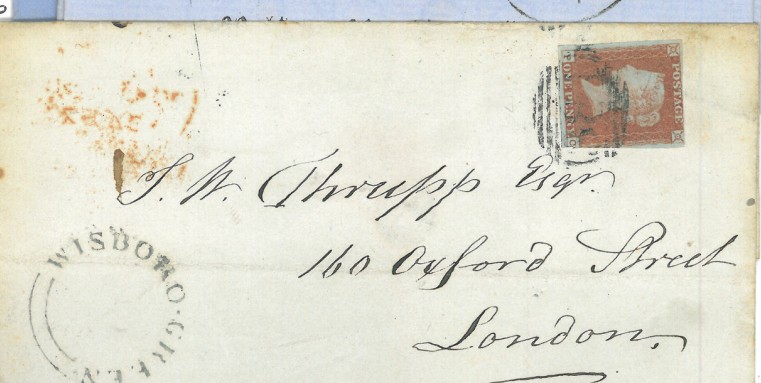 POSTAGE
ONE PENNY
J. W. Thrupp Esqr.
160 Oxford Street
London.
WISBORO-GREEN